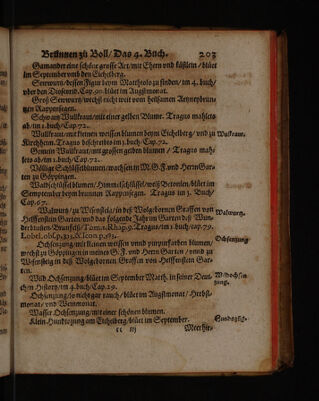 Brunnen zů Boll / Das 4. Buch. 203
Gamander eine schöne grosse Art / mit Ehern vnd käßlein / blüet
im September vmb den Eichelberg.
Serwurtz / dessen Figur beym Matthiolo zu finden / im 4. buch /
vber den Dioscorid. Cap. 90. blüet im Augstmonat.
Groß Serwurtz / wechst nicht weit vom heilsamen
gen Rappinsegen.
Wullkraut / mit einer gelben Blume. Tragus mahlets
ab / im 1. buch / Cap. 72.
Wullkraut / mit kleinen weissen blumen beym Eichelberg / vnd zu
Wullkraut.
Kirchheim. Tragus beschreibts im 1. buch / Cap. 72.
Gemein Wullkraut / mit grossen gelben blumen / Tragus mah-
lets ab / im 1. buch / Cap. 72.
Schlüsselblumen / wachsen in M. G. F. vnd Herrn Gar-
ten zu Göppingen.
Waldschlüsselblumen / Himmelschlüssel / weiß Betonien / blüet im
September beym brunnen Rappinsegen. Tragus im 1. Buch /
Cap. 67.
Walwurtz / zu Wisenstaig / in deß Wolgebornen Graffen von
Walwurtz.
Helffenstein Garten / vnd das folgende Jahr im Garten deß Wun-
Tragus / im 1. buch / cap. 79.
Ochsenzung / mit kleinen weissen vnnd purpurfarben blumen /
Ochsenzung
wechst zu Göppingen in meines G. F. vnd Herrn Garten / vnnd zu
Wisenstaig in deß Wolgebornen Graffen von Helffenstein Gar-
ten.
Wild Ochsenzung / blüet im September Matth. in seiner Deut-
schen History / im 4. buch / Cap. 29.
Ochsenzung / so nicht gar rauch / blüet im Augstmonat / Herbst-
monat / vnd Weinmonat.
Wasser Ochsenzung / mit einer schönen blumen.
Klein Hundszung am Eichelberg / blüet im September.
Hundszung.
cc iij
Meerhir-